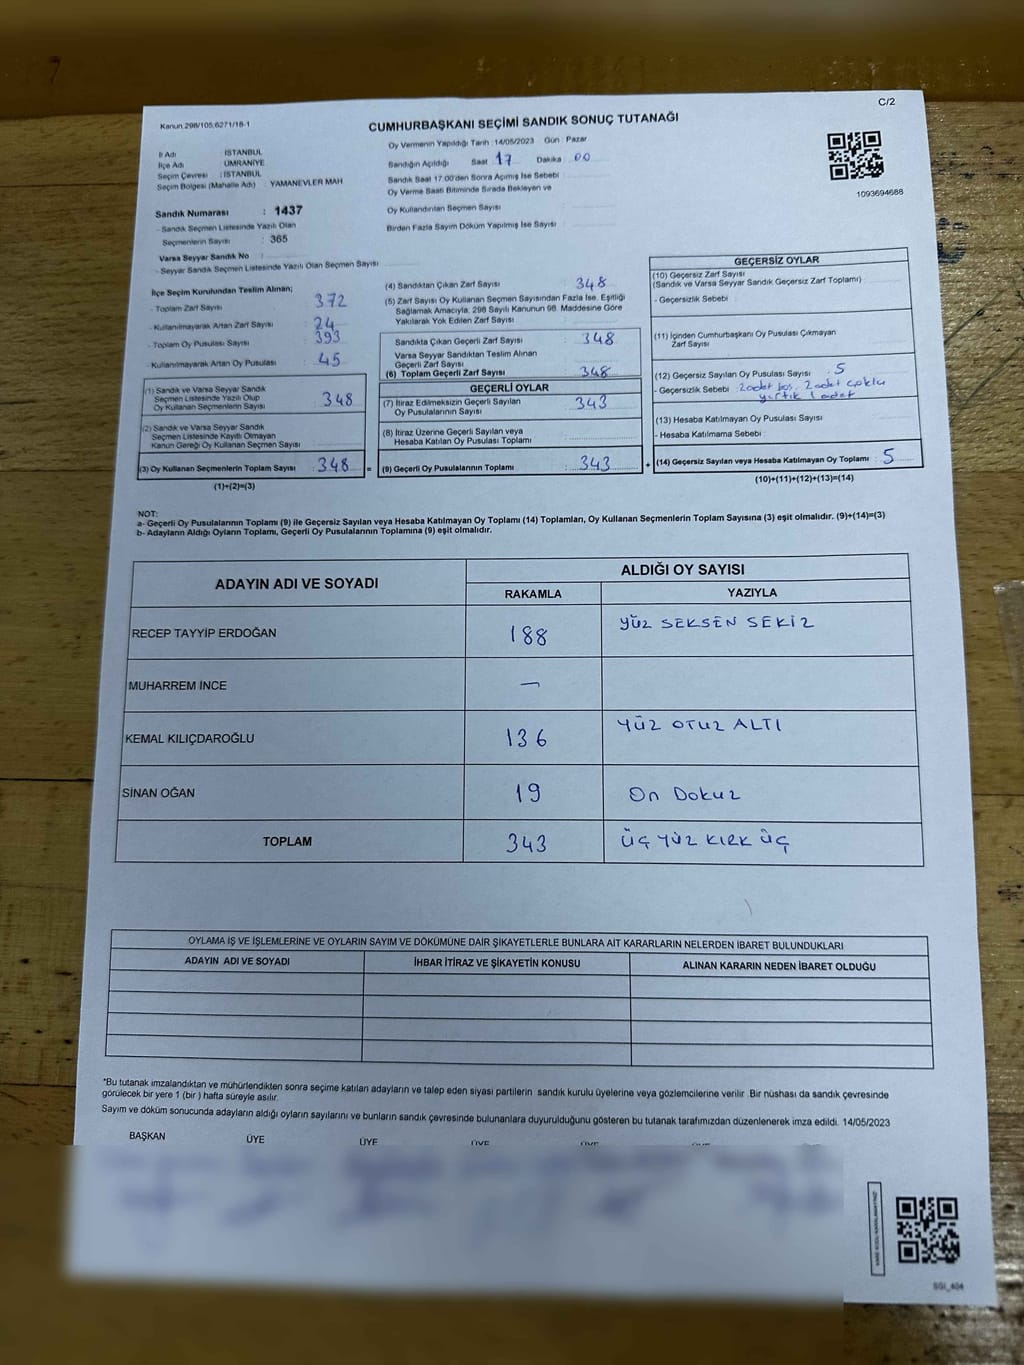 C/2
Kanun 298/105;6271/18-1
CUMHURBAŞKANI SEÇİMİ SANDIK SONUÇ TUTANAĞI
İl Adı : İSTANBUL
İlçe Adı : ÜMRANİYE
Seçim Çevresi : İSTANBUL
Seçim Bölgesi (Mahalle Adı) YAMANEVLER MAH
Sandık Numarası : 1437
- Sandık Seçmen Listesinde Yazılı Olan
Seçmenlerin Sayısı : 365
Varsa Seyyar Sandık No :
- Seyyar Sandık Seçmen Listesinde Yazılı Olan Seçmen Sayısı
Oy Vermenin Yapıldığı Tarih :14/05/2023 Gün : Pazar
Sandığın Açıldığı Saat 17 Dakika 00
Sandık Saat 17:00'den Sonra Açılmış İse Sebebi
Oy Verme Saati Bitiminde Sırada Bekleyen ve
Oy Kullandırılan Seçmen Sayısı
Birden Fazla Sayım Döküm Yapılmış İse Sayısı
1093694688
İlçe Seçim Kurulundan Teslim Alınan;
- Toplam Zarf Sayısı 372
- Kullanılmayarak Artan Zarf Sayısı 24
- Toplam Oy Pusulası Sayısı 393
- Kullanılmayarak Artan Oy Pusulası 45
(1) Sandık ve Varsa Seyyar Sandık
Seçmen Listesinde Yazılı Olup
Oy Kullanan Seçmenlerin Sayısı 348
(2) Sandık ve Varsa Seyyar Sandık
Seçmen Listesinde Kayıtlı Olmayan
Kanun Gereği Oy Kullanan Seçmen Sayısı
(3) Oy Kullanan Seçmenlerin Toplam Sayısı : 348 =
(1)+(2)=(3)
(4) Sandıktan Çıkan Zarf Sayısı 348
(5) Zarf Sayısı Oy Kullanan Seçmen Sayısından Fazla İse, Eşitliği
Sağlamak Amacıyla, 298 Sayılı Kanunun 98. Maddesine Göre
Yakılarak Yok Edilen Zarf Sayısı
Sandıkta Çıkan Geçerli Zarf Sayısı : 348
Varsa Seyyar Sandıktan Teslim Alınan
Geçerli Zarf Sayısı
(6) Toplam Geçerli Zarf Sayısı 348
GEÇERLİ OYLAR
(7) İtiraz Edilmeksizin Geçerli Sayılan
Oy Pusulalarının Sayısı 343
(8) İtiraz Üzerine Geçerli Sayılan veya
Hesaba Katılan Oy Pusulası Toplamı
(9) Geçerli Oy Pusulalarının Toplamı : 343 +
GEÇERSİZ OYLAR
(10) Geçersiz Zarf Sayısı
(Sandık ve Varsa Seyyar Sandık Geçersiz Zarf Toplamı)
- Geçersizlik Sebebi
(11) İçinden Cumhurbaşkanı Oy Pusulası Çıkmayan
Zarf Sayısı
(12) Geçersiz Sayılan Oy Pusulası Sayısı 5
- Geçersizlik Sebebi 2 adet boş, 2 adet çoklu
yırtık 1 adet
(13) Hesaba Katılmayan Oy Pusulası Sayısı
- Hesaba Katılmama Sebebi
(14) Geçersiz Sayılan veya Hesaba Katılmayan Oy Toplamı : 5
(10)+(11)+(12)+(13)=(14)
NOT:
a- Geçerli Oy Pusulalarının Toplamı (9) ile Geçersiz Sayılan veya Hesaba Katılmayan Oy Toplamı (14) Toplamları, Oy Kullanan Seçmenlerin Toplam Sayısına (3) eşit olmalıdır. (9)+(14)=(3)
b- Adayların Aldığı Oyların Toplamı, Geçerli Oy Pusulalarının Toplamına (9) eşit olmalıdır.
ADAYIN ADI VE SOYADI ALDIĞI OY SAYISI
RAKAMLA YAZIYLA
RECEP TAYYİP ERDOĞAN 188 YÜZ SEKSEN SEKİZ
MUHARREM İNCE —
KEMAL KILIÇDAROĞLU 136 YÜZ OTUZ ALTI
SİNAN OĞAN 19 On Dokuz
TOPLAM 343 ÜÇ YÜZ KIRK ÜÇ
OYLAMA İŞ VE İŞLEMLERİNE VE OYLARIN SAYIM VE DÖKÜMÜNE DAİR ŞİKAYETLERLE BUNLARA AİT KARARLARIN NELERDEN İBARET BULUNDUKLARI
ADAYIN ADI VE SOYADI İHBAR İTİRAZ VE ŞİKAYETİN KONUSU ALINAN KARARIN NEDEN İBARET OLDUĞU
*Bu tutanak imzalandıktan ve mühürlendikten sonra seçime katılan adayların ve talep eden siyasi partilerin sandık kurulu üyelerine veya gözlemcilerine verilir. Bir nüshası da sandık çevresinde
görülecek bir yere 1 (bir ) hafta süreyle asılır.
Sayım ve döküm sonucunda adayların aldığı oyların sayılarını ve bunların sandık çevresinde bulunanlara duyurulduğunu gösteren bu tutanak tarafımızdan düzenlenerek imza edildi. 14/05/2023
BAŞKAN ÜYE ÜYE ÜYE ÜYE ÜYE
SGI_404